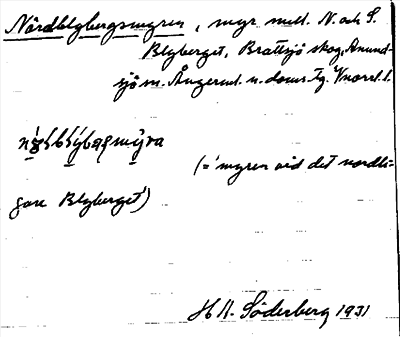 Nordblybergsmyren, myr mell. N. och S.
Blyberget, Brattsjö skog, Anund-
sjö sn. Ångerml. n. doms tg. Vnorrl. l.
(= 'myren vid det nordli-
gare Blyberget')
H A. Söderberg 1931